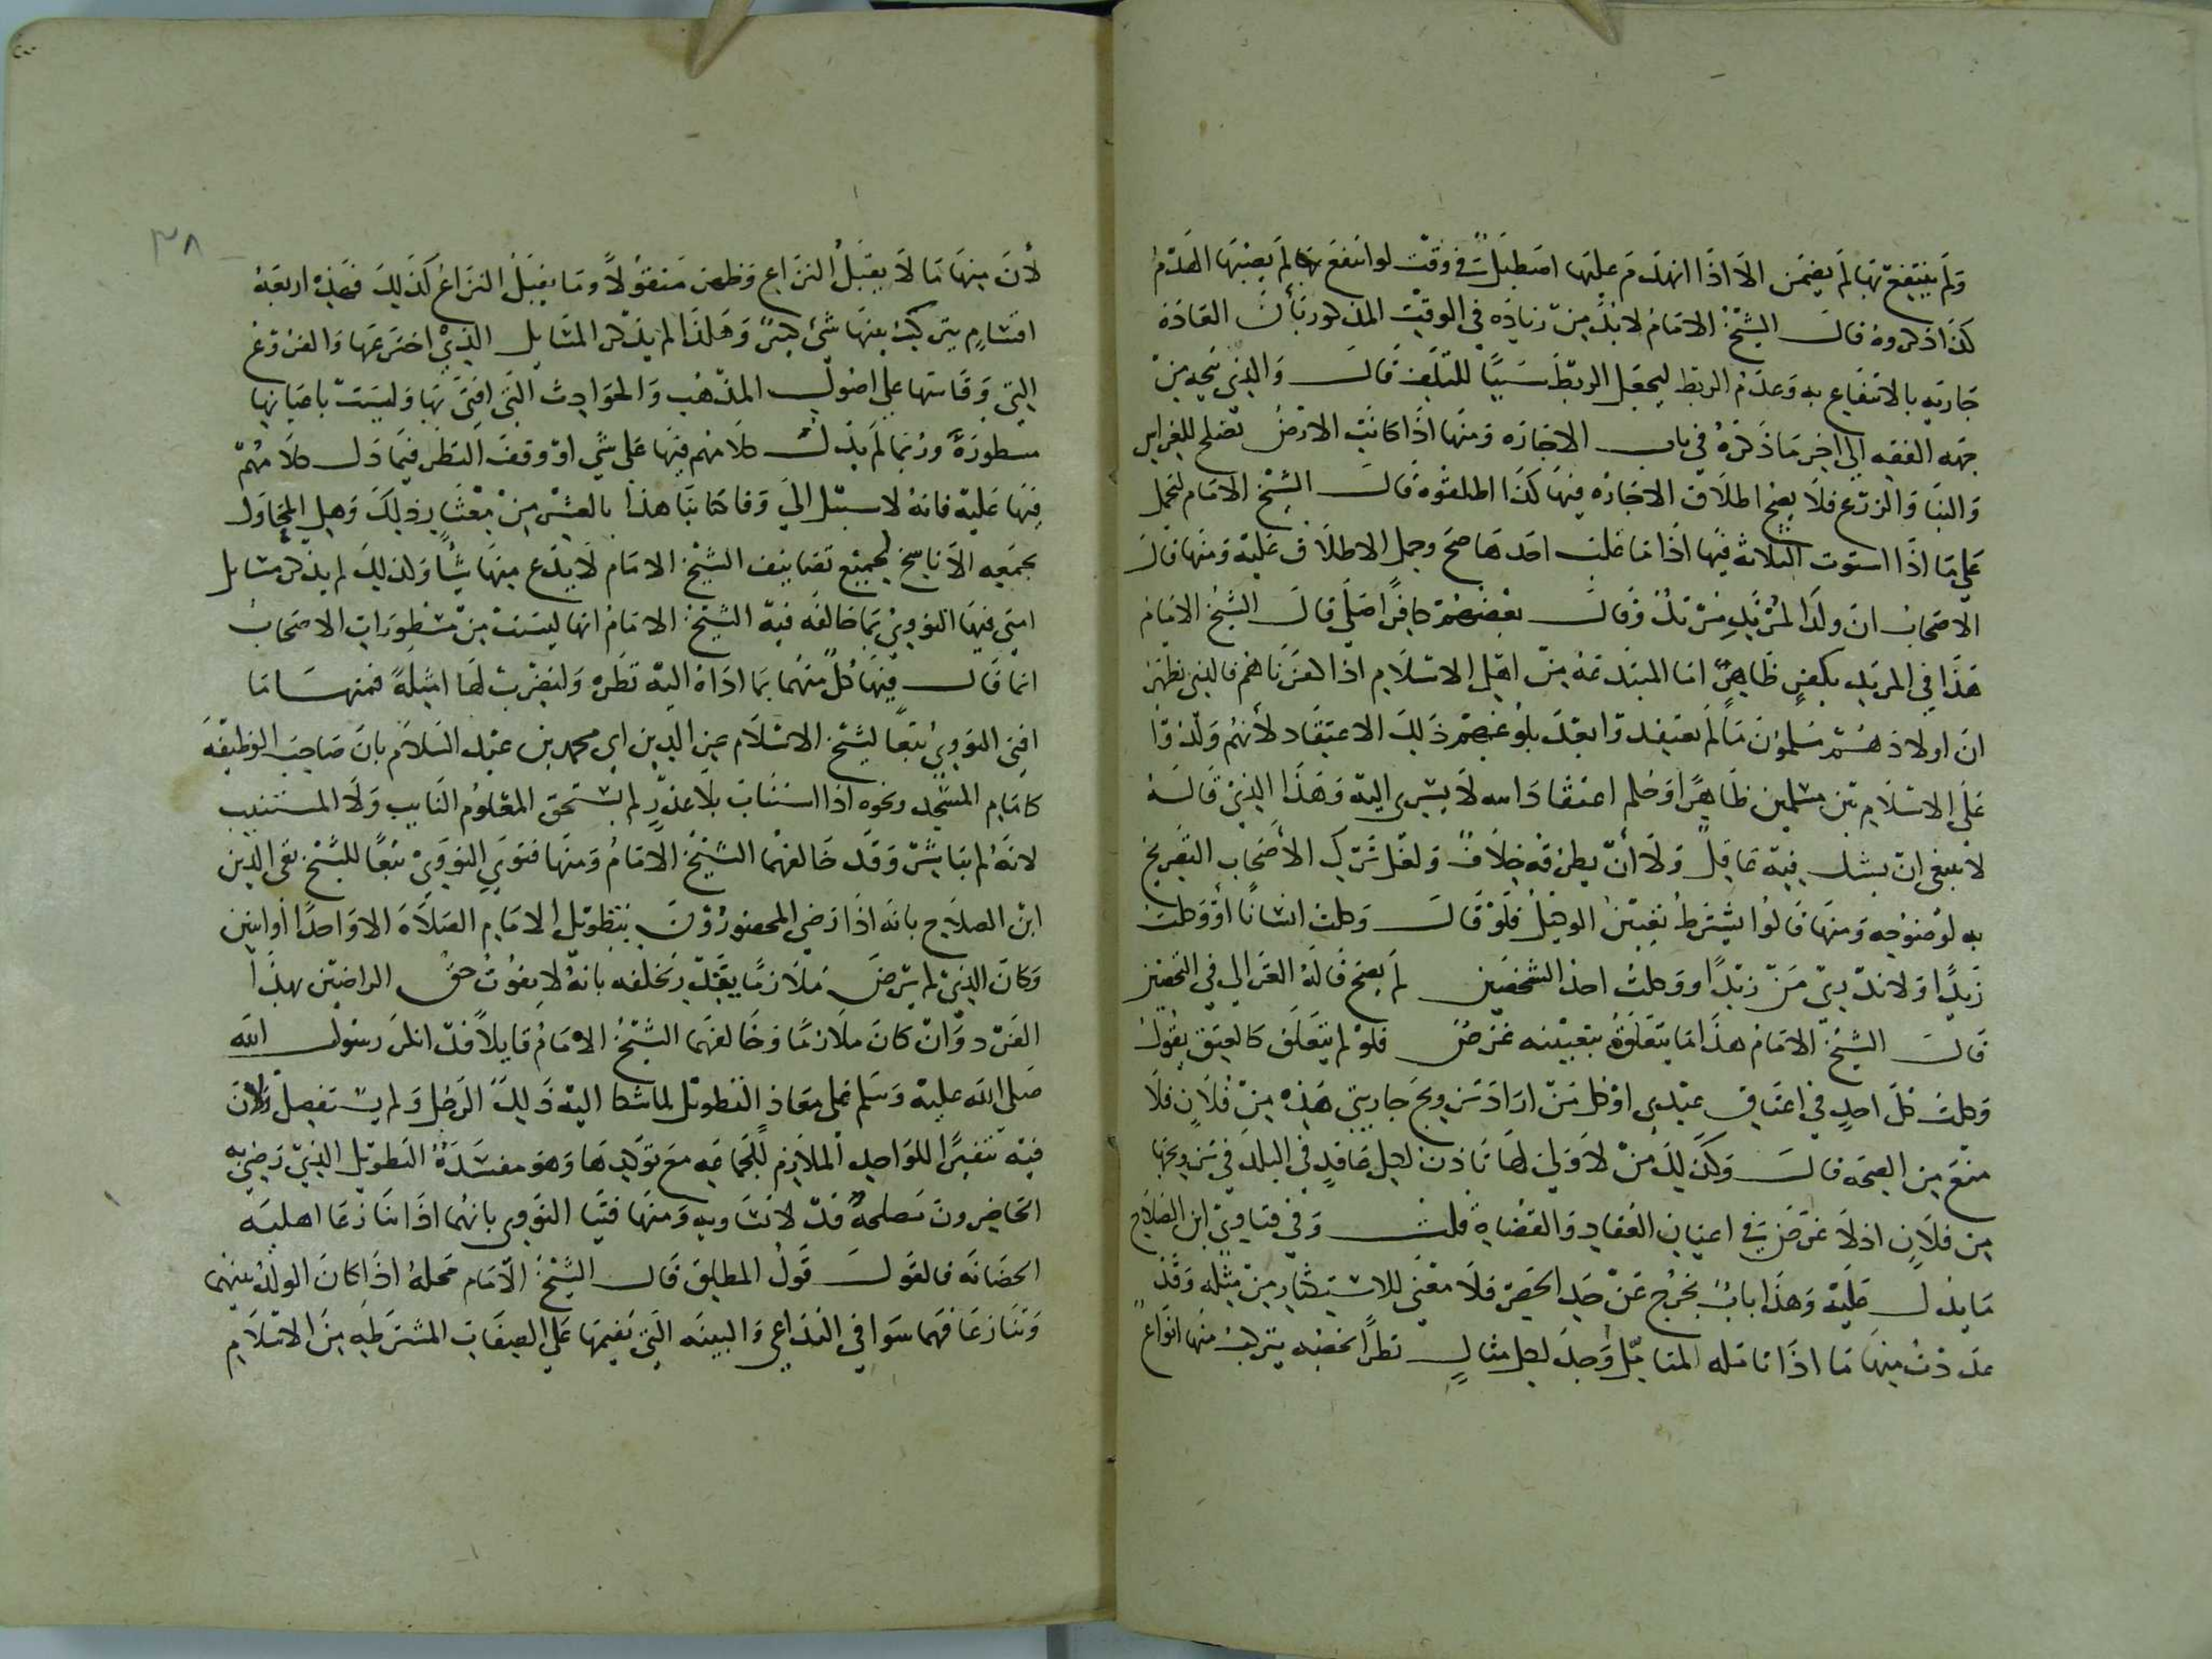 ولم ينتفع بها لم يضمن الا اذا انهدم عليها اصطبل في وقت لو انتفع بها لم يصبها الهدم
كذا ذكروه قال الشيخ الامام لا بد من زياده في الوقت المذكور بأن العاده
جاريه بالانتفاع به وعدم الربط ليجعل الربط سببا للتلف قال والذي يتجه من
جهه الفقه الي اخر ما ذكره في باب الاجاره ومنها اذا كانت الارض تصلح للغراس
والبنا والزرع فلا يصح اطلاق الاجاره فيها كذا اطلقوه قال الشيخ الامام ليحمل
علي ما اذا استوت الثلاثة فيها اذا ما غلب احدها صح وحمل الاطلاق عليه ومنها قال
الاصحاب ان ولد المرتد مرتد وقال بعضهم كافر اصلي قال الشيخ الامام
هذا في المرتد بكفر ظاهر اما المبتدعة من اهل الاسلام اذا كفرناهم فالذي نظهر
ان اولادهم مسلمون ما لم يعتقدوا بعد بلوغهم ذلك الاعتقاد لأنهم ولدوا
علي الاسلام بين مسلمين ظاهرا وحكم اعتقاد ابيه لا يسري اليه وهذا الذي قاله
لا ينبغي ان يشك فيه عاقل ولا أن يطرقه خلاف ولعل ترك الأصحاب التصريح
به لوضوحه ومنها قالوا يشترط تعيين الوكيل فلو قال وكلت انسانا أو وكلت
زيدا ولا ندري من زيد او وكلت احد الشخصين لم يصح قاله الغزالي في التحصين
قال الشيخ الامام هذا ما يتعلق بتعيينه غرض فلو لم يتعلق كالعتق يقول
وكلت كل احد في اعتاق عبدي او كل من اراد تزويج جاريتي هذه من فلان فلا
منع من الصحه قال وكذلك من لا ولي لها تأذن لكل عاقد في البلد في تزويجها
من فلان اذ لا غرض في اعيان العقاد والقضاة قلت وفي فتاوي ابن الصلاح
ما يدل عليه وهذا باب يخرج عن حد الحصر فلا معني للاستكثار من مثله وقد
عددت منها ما اذا تامله المتامل وجد لكل مثال نظرا يخصه يتركب منها انواع
٣٨
لأن منها ما لا يقبل النزاع وظهر منقولا وما يقبل النزاع كذلك فهذه اربعة
اقسام يتركب بعضها شئ كثير وهكذا لم يذكر المسايل الذي اخترعها والفروع
التي وقاسها علي اصول المذهب والحوادث التي افتي بها وليست باعيانها
مسطورة وربما لم يدل كلامهم فيها علي شي او وقف النظر فيما دل كلامهم
فيها عليه فانه لا سبيل الي وفا كتابنا هذا بالعشر من معشار ذلك وهل المحاول
بجمعه الا ناسخ لجميع تصانيف الشيخ الامام لا يدع منها شيأ ولذلك لم يذكر مسايل
افتي فيها النووي بما خالفه فيه الشيخ الامام انها ليست من مسطورات الاصحاب
انما قال فيها كل منهما بما اداه اليه نظره ولنضرب لها امثلة فمنها ما
افتي النووي تبعا لشيخ الاسلام عز الدين ابي محمد بن عبد السلام بان صاحب الوظيفه
كامام المسجد ونحوه اذا استناب بلا عذر لم يستحق المعلوم النايب ولا المستنيب
لانه لم يباشر وقد خالفهما الشيخ الامام ومنها فتوي النووي تبعا للشيخ تقي الدين
ابن الصلاح بانه اذا رضي المحصورون بتطويل الامام الصلاة الا واحدا او اثنين
وكان الذي لم يرض ملازما يقيد بتخلفه بانه لا يفوت حق الراضين بهذا
الفرد وان كان ملازما وخالفهما الشيخ الامام قايلا قد انكر رسول الله
صلي الله عليه وسلم علي معاذ التطويل لما شكا اليه ذلك الرجل ولم يستفصل ولان
فيه تنفيرا للواحد الملازم للجماعه مع توكيدها وهو مفسدة التطويل الذي رضي به
الحاضرون مصلحة قد لا تساويه ومنها فتيا النووي بانهما اذا تنازعا اهليه
الحضانه فالقول قول المطلق قال الشيخ الامام محله اذا كان الولد بينهما
وتنازعا فهما سوا في التداعي والبينه التي نقيمها علي الصفات المشترطه من الاسلام